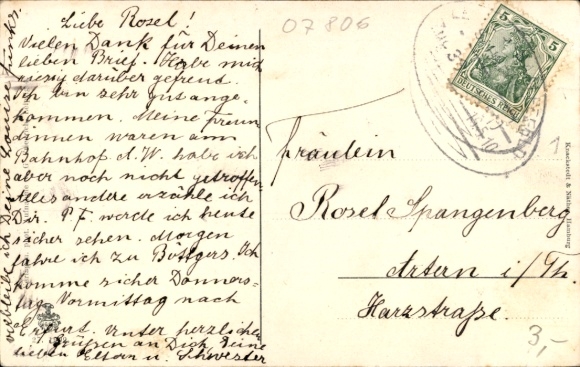 Liebe Rosel!
Vielen Dank für Deinen
lieben Brief. Habe mich
riesig darüber gefreut.
Ich bin sehr gut ange-
kommen. Meine Freun-
dinnen waren am
Bahnhof A.W. habe ich
aber noch nicht getroffen
alles andere erzähle ich
Dir. P.F. werde ich heute
sicher sehen. Morgen
fahre ich zu Böttgers. Ich
komme sicher Donners-
tag Vormittag nach
Erfurt. Unter herzlichen
Grüßen an Dich, Deine
lieben Eltern u. Schwester
verbleibe ich Deine Louise
07806
5 5
DEUTSCHES REICH
Fräulein
Rosel Spangenberg
Artern i/Th.
Harzstraße.
Knackstedt & Näther, Hamburg
1
3,-